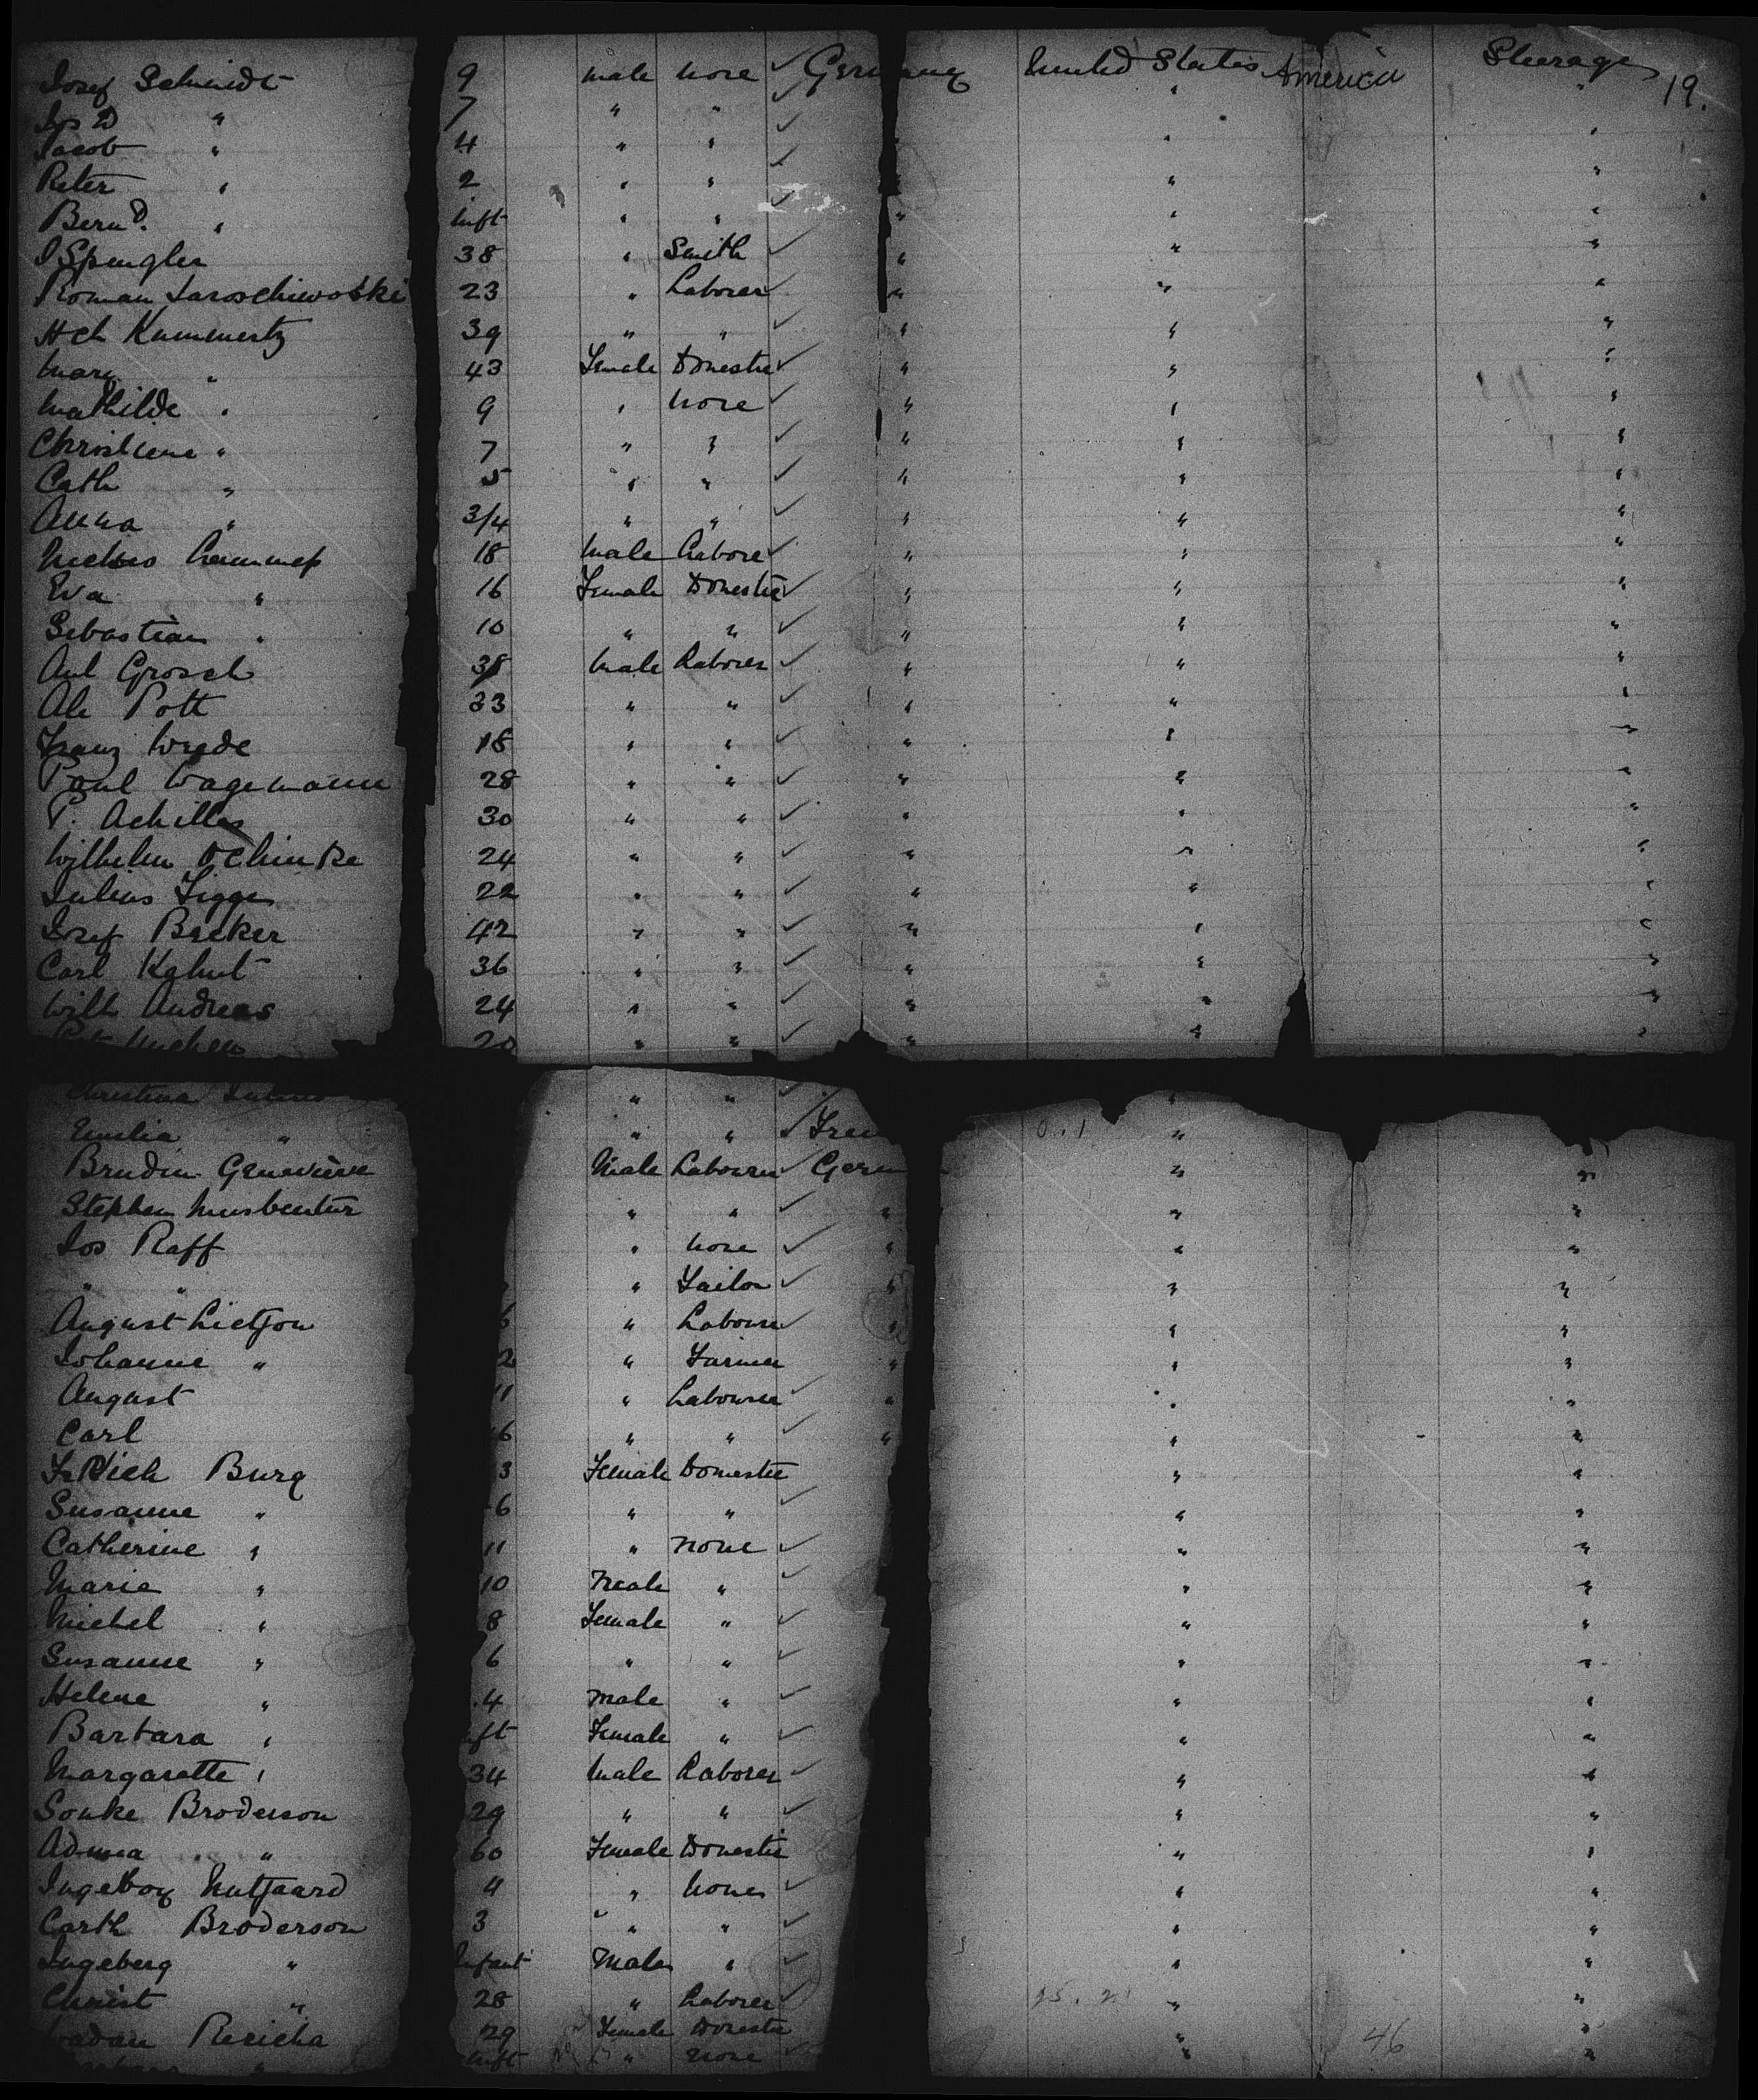 Josef Schmidt 9 male none ✓ Germany United States America Steerage 19.
Jos D " 7 " " ✓ " " "
Jacob " 4 " " ✓ " " "
Peter " 2 " " ✓ " " "
Bernd. " Inft " " ✓ " " "
J Spengler 38 " Smith ✓ " " "
Roman Jaroschiewoski 23 " Laborer ✓ " " "
Hch Kummertz 39 " " ✓ " " "
Mary " 43 Female Domestic ✓ " " "
Mathilde " 9 " none ✓ " " "
Christiene " 7 " " ✓ " " "
Cath " 5 " " ✓ " " "
Anna " 3/4 " " ✓ " " "
18 Male Labore ✓ " " "
Eva " 16 Female Domestic ✓ " " "
Sebastian " 10 " " ✓ " " "
Ant Grosch 38 Male Laborer ✓ " " "
Ale Pott 33 " " ✓ " " "
Franz Wrede 18 " " ✓ " " "
Paul Wagemann 28 " " ✓ " " "
P. Achilles 30 " " ✓ " " "
Wilhelm 24 " " ✓ " " "
Julius Figge 22 " " ✓ " " "
Josef Becker 42 " " ✓ " " "
Carl Kahut 36 " " ✓ " " "
Wilh Andreas 24 " " ✓ " " "
20 " " ✓ " " "
Christina " " ✓ "
Emilia " " " ✓ "
Brudin Genevieve Male Labourer ✓ Germ " "
Stephen " " ✓ " " "
Jos Raff " none ✓ " " "
" " " Tailor ✓ " " "
August Lietjou 6 " Labourer ✓ " " "
Johanne " 2 " Farmer " " "
August 11 " Labourer ✓ " " "
Carl 6 " " ✓ " " "
Burg 3 Female Domestic " "
Susanne " 6 " " ✓ " "
Catherine " 11 " none ✓ " "
Marie " 10 Male " ✓ " "
Michel " 8 Female " ✓ " "
Susanne " 6 " " ✓ " "
Helene " 4 male " ✓ " "
Barbara " nft Female " ✓ " "
Margarette " 34 Male Laborer ✓ " "
Sonke Broderson 29 " " ✓ " "
" 60 Female Domestic " "
Ingeborg 4 " None ✓ " "
Carth Broderson 3 " " ✓ " "
Ingeberg " Infant Male " ✓ " "
Christ " 28 " Laborer ✓ " "
29 Female Domestic 46 " "
" Inft " none ✓ " "